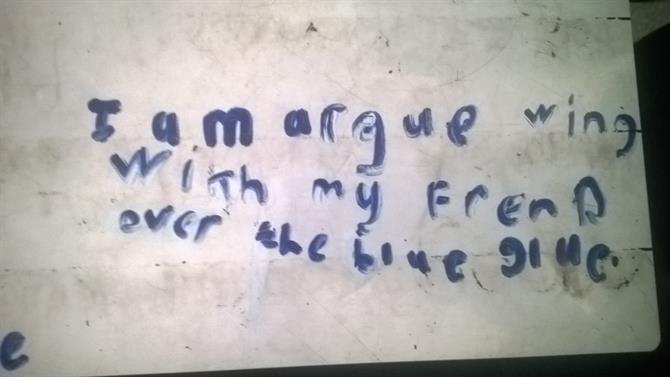 I am argue wing
with my FrenD
over the blue glue.
e